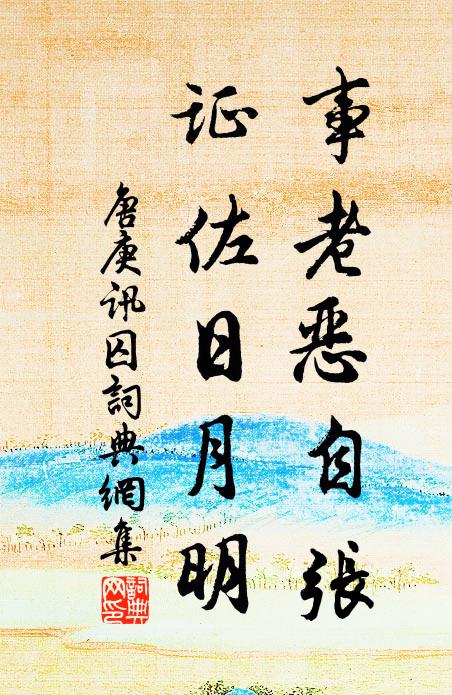 事老恶自張
证佐日月明
唐庚讯囚詞典網集
詞典